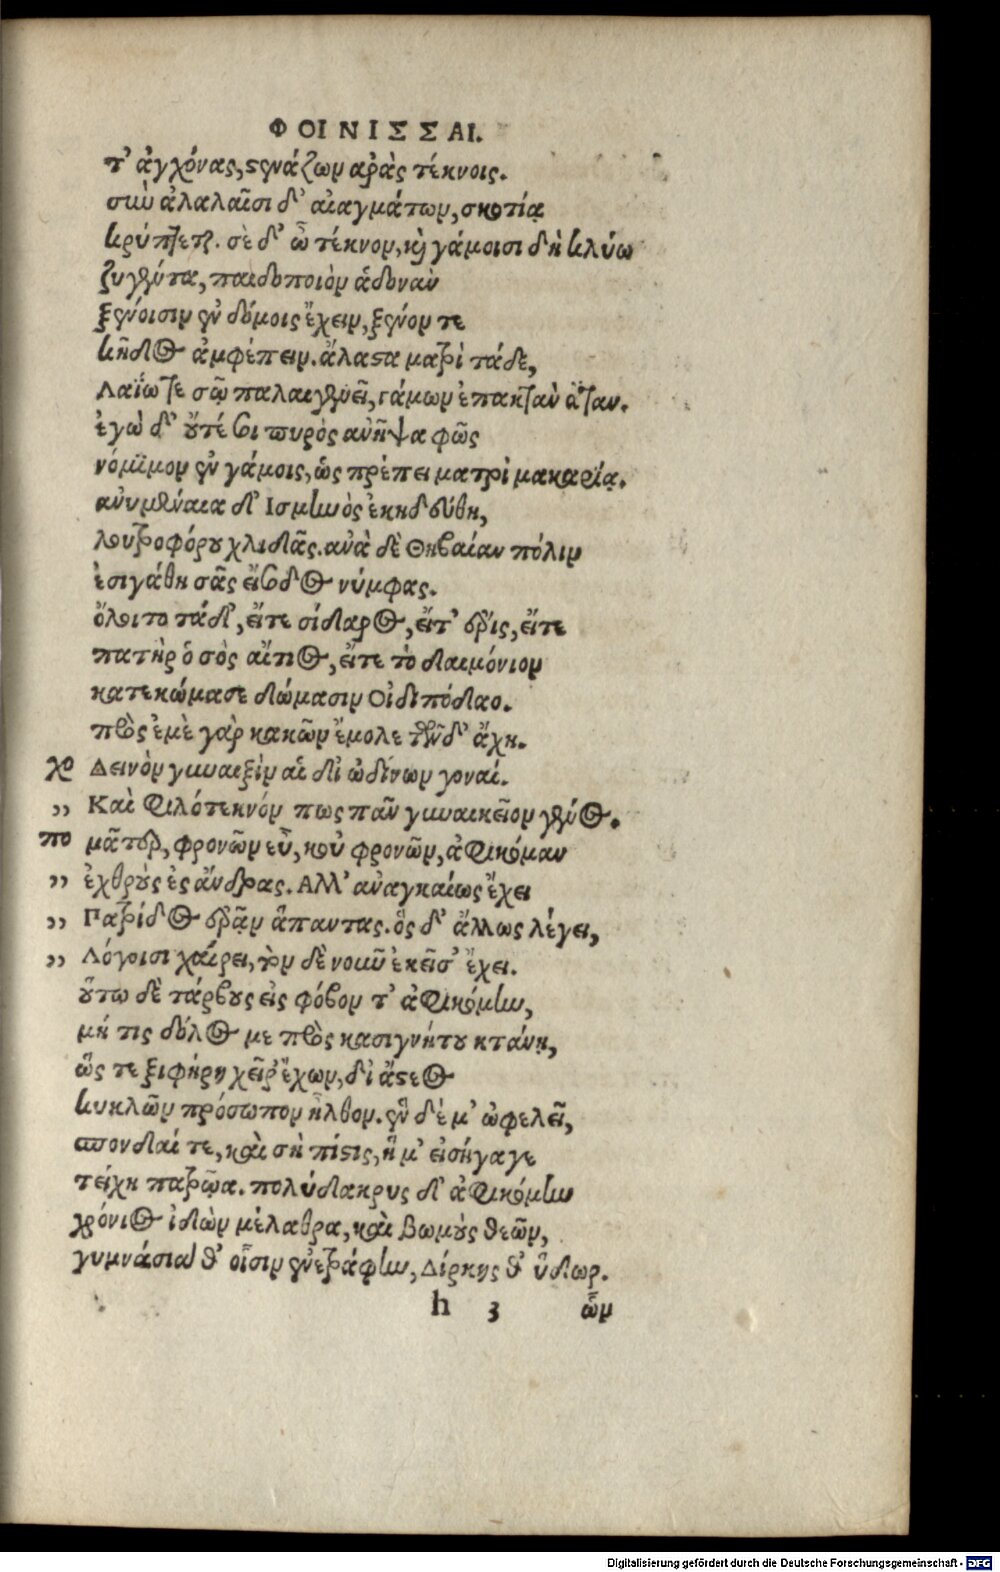 ΦΟΙΝΙΣΣΑΙ.
τ' ἀγχόνας, στενάζων ἀρὰς τέκνοις.
σὺν ἀλαλαῖσι δ' αἰαγμάτων, σκοτία
κρύπτεται. σὲ δ' ὦ τέκνον, καὶ γάμοισι δὴ κλύω
ζυγέντα, παιδοποιὸν ἁδονὰν
ξένοισιν ἐν δόμοις ἔχειν, ξένον τε
κῆδος ἀμφέπειν. ἄλαστα ματρὶ τάδε,
Λαΐῳ τε σῷ παλαιγενεῖ, γάμων ἐπακτὰν ἄταν.
ἐγὼ δ' οὔτέ σοι πυρὸς ἀνῆψα φῶς
νόμιμον ἐν γάμοις, ὡς πρέπει ματρὶ μακαρίᾳ.
ἀνυμέναια δ' Ισμηνὸς ἐκηδεύθη,
λουτροφόρου χλιδᾶς. ἀνὰ δὲ Θηβαίαν πόλιν
ἐσιγάθη σᾶς εἴσοδος νύμφας.
ὄλοιτο τάδ', εἴτε σίδαρος, εἴτ' ἔρις, εἴτε
πατὴρ ὁ σὸς αἴτιος, εἴτε τὸ δαιμόνιον
κατεκώμασε δώμασιν Οἰδιπόδαο.
πρὸς ἐμὲ γὰρ κακῶν ἔμολε τῶνδ' ἄχη.
χο Δεινὸν γυναιξὶν αἱ δι' ὠδίνων γοναί.
,, Καὶ φιλότεκνόν πως πᾶν γυναικεῖον γένος.
πο μᾶτερ, φρονῶν εὖ, κοὐ φρονῶν, ἀφικόμαν
,, ἐχθροὺς ἐς ἄνδρας. Αλλ' ἀναγκαίως ἔχει
,, Πατρίδος ἐρᾷν ἅπαντας. ὃς δ' ἄλλως λέγει,
,, Λόγοισι χαίρει, τὸν δὲ νοῦν ἐκεῖσ' ἔχει.
οὕτω δὲ τάρβους εἰς φόβον τ' ἀφικόμην,
μή τις δόλος με πρὸς κασιγνήτου κτάνῃ,
ὥς τε ξιφήρη χεῖρ' ἔχων, δι' ἄστεος
κυκλῶν πρόσωπον ἦλθον. ἓν δέ μ' ὠφελεῖ,
σπονδαί τε, καὶ σὴ πίστις, ἥ μ' εἰσήγαγε
τείχη πατρῷα. πολύδακρυς δ' ἀφικόμην
χρόνιος ἰδὼν μέλαθρα, καὶ βωμοὺς θεῶν,
γυμνάσιά θ' οἷσιν ἐνετράφην, Δίρκης θ' ὕδωρ.
h 3 ὧν
Digitalisierung gefördert durch die Deutsche Forschungsgemeinschaft - DFG